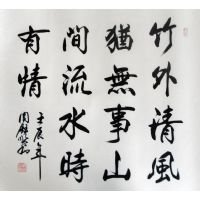 竹外清風
猶無事山
間流水時
有情
壬辰年